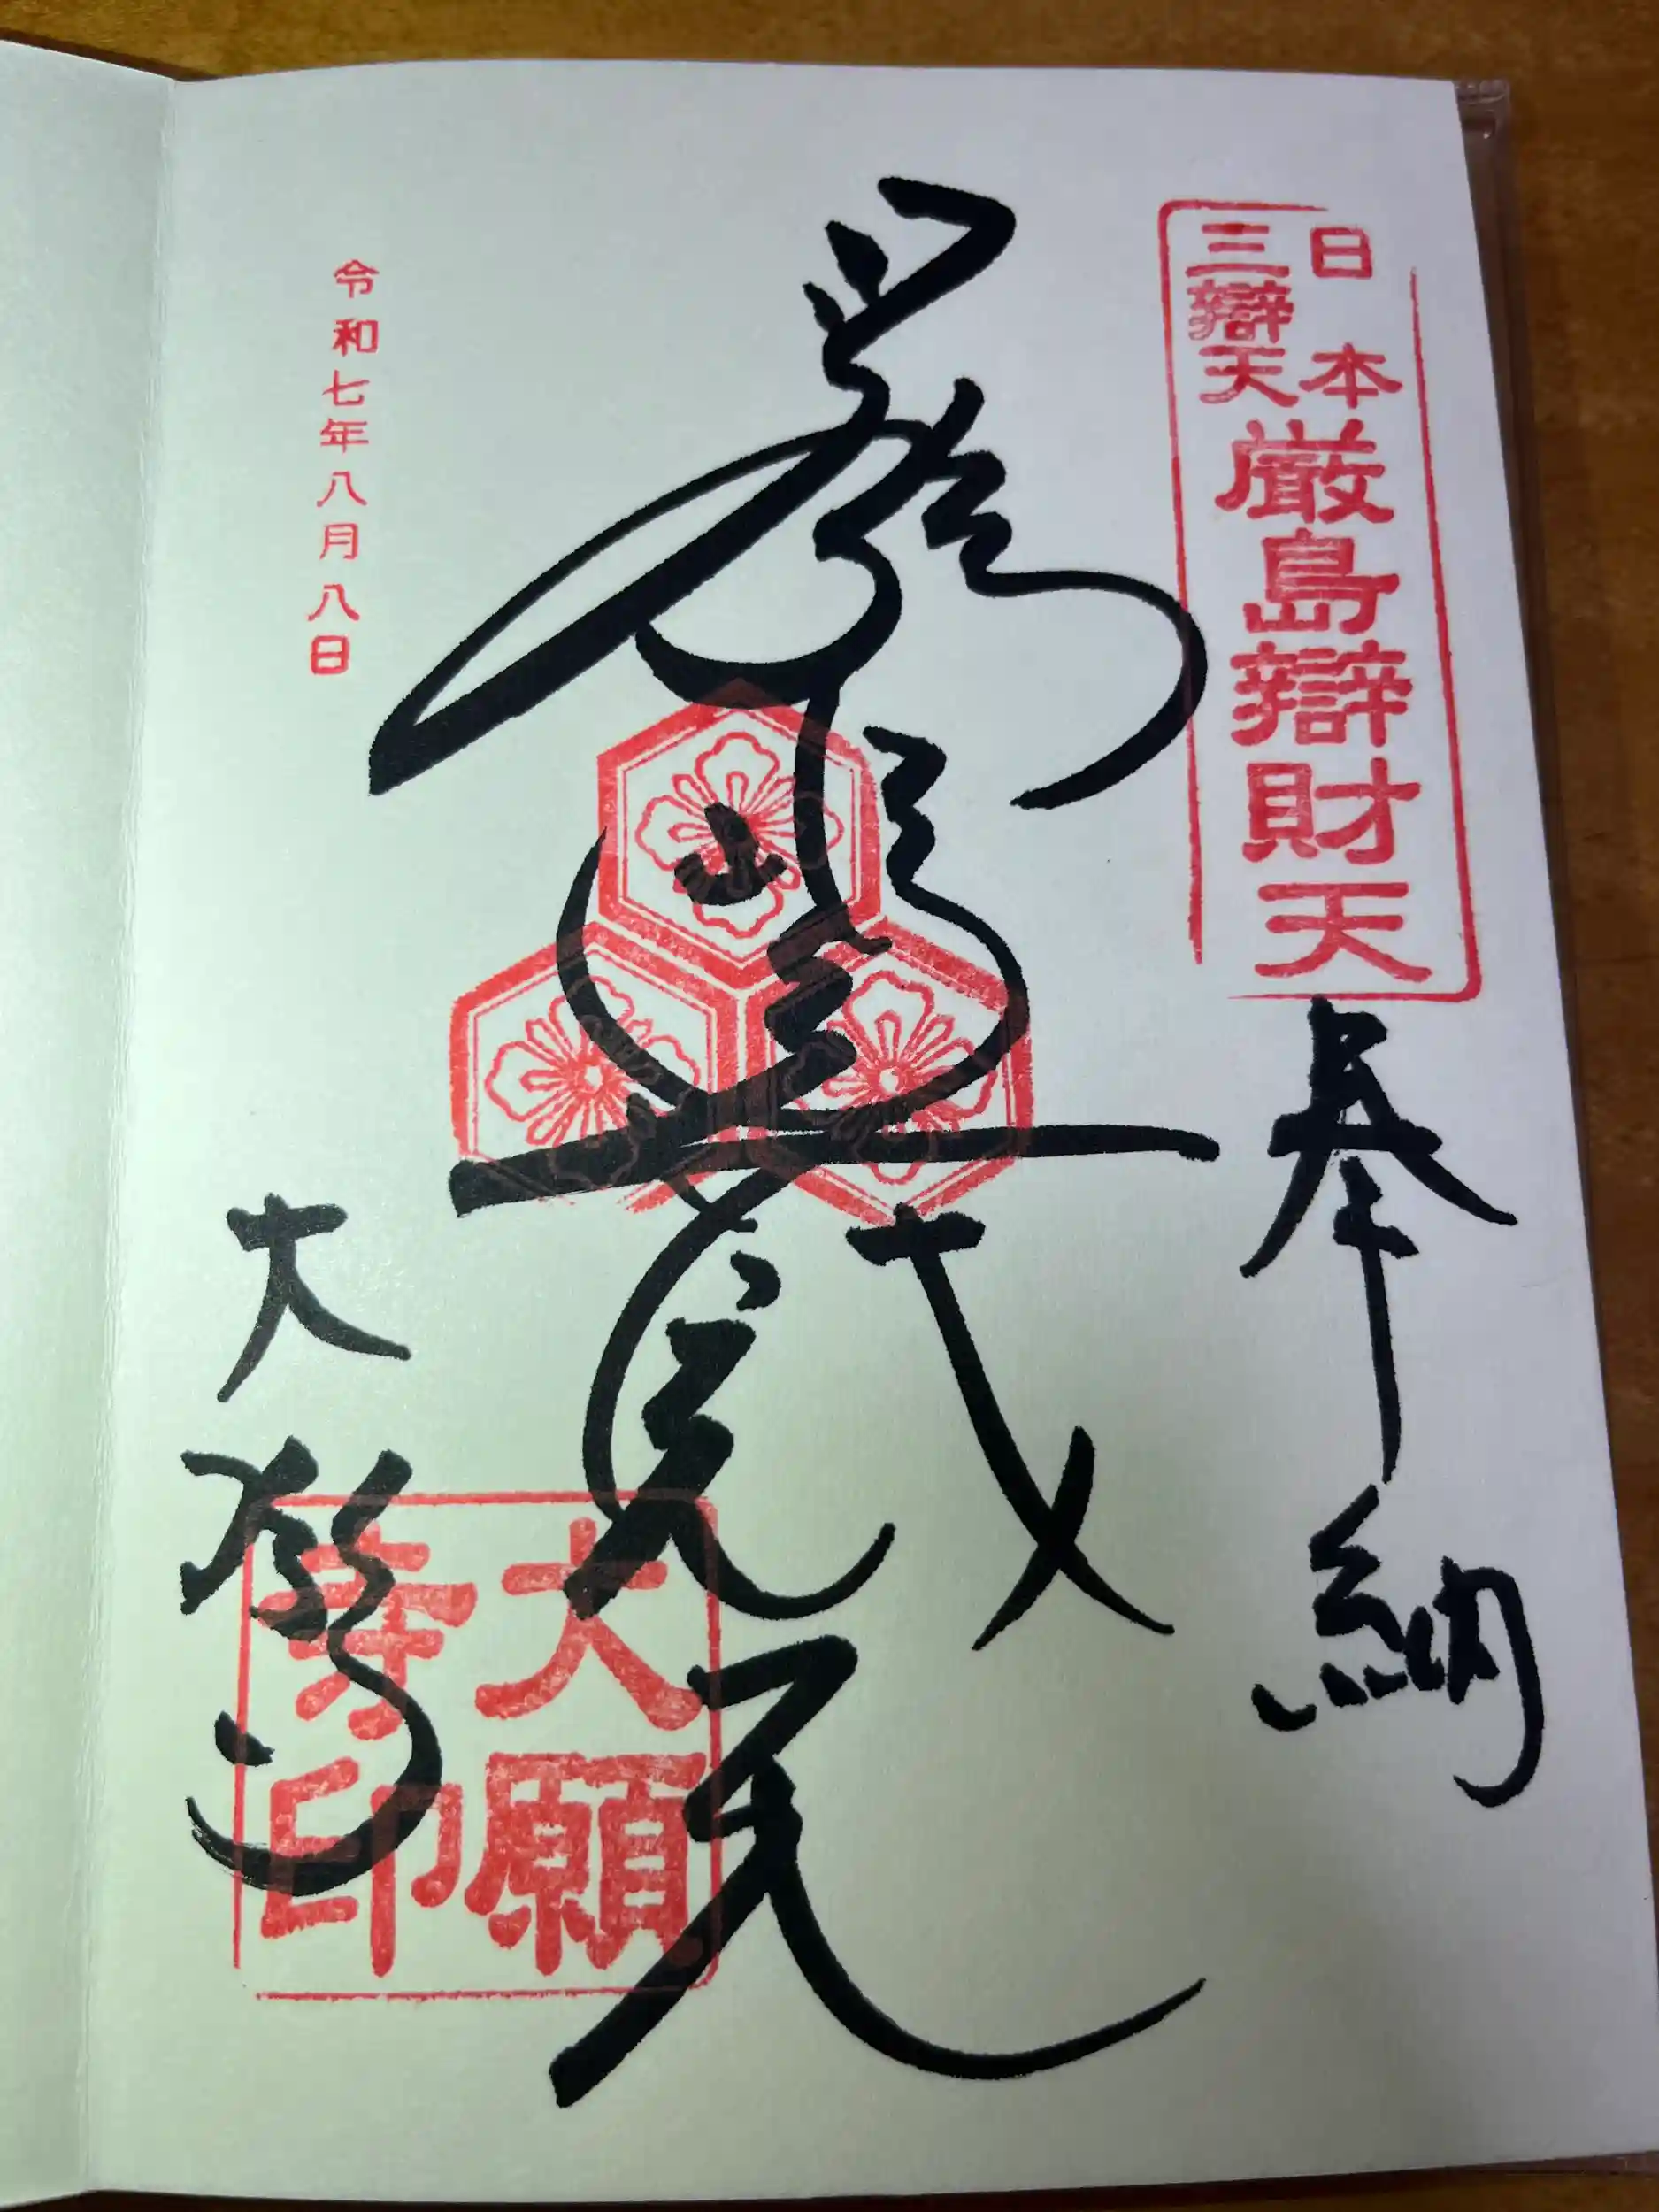 日本
三辯天
厳島辯財天
奉納
厳島
大願寺
大願
寺印
令和七年八月八日